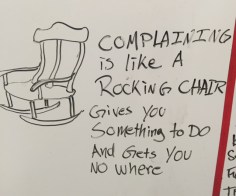 COMPLAINING
is like A
ROCKING CHAIR
Gives you
Something to DO
And Gets You
No where